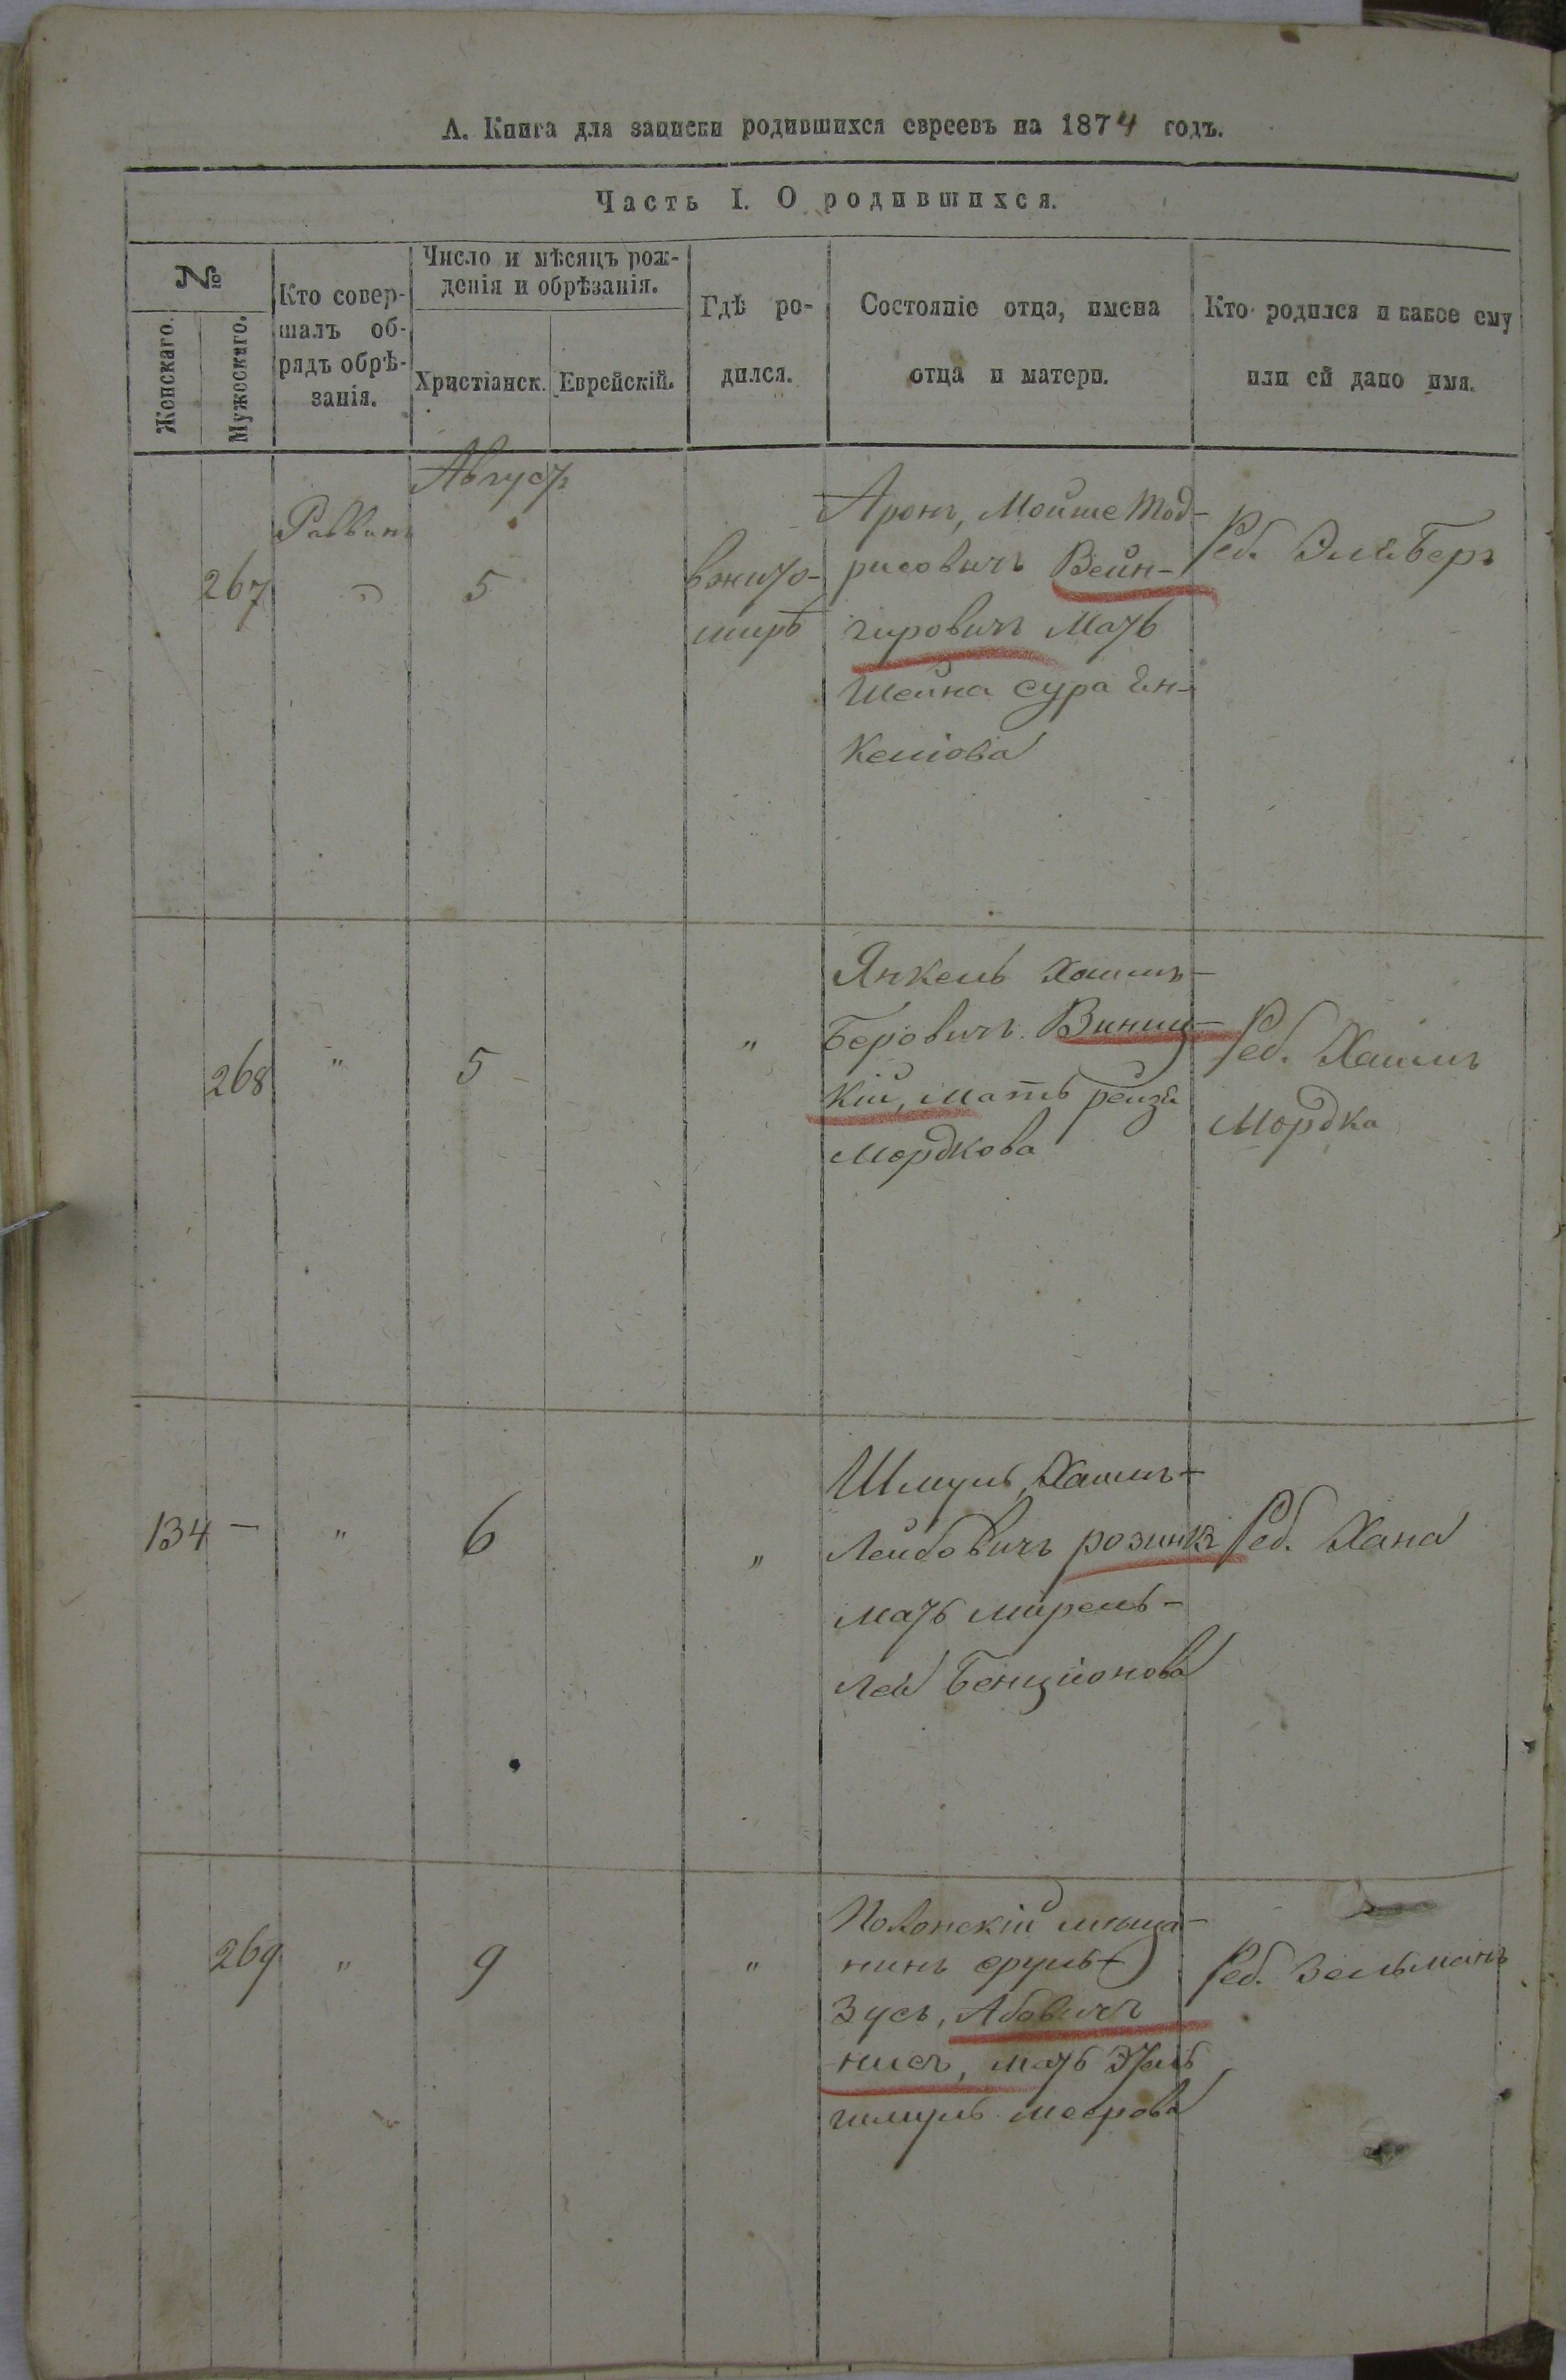 А. Книга для записки родившихся евреевъ на 1874 годъ.
Часть I. О родившихся.
№
Женскаго.
Мужескаго.
Кто совер-
шалъ об-
рядъ обрѣ-
занія.
Число и мѣсяцъ рож-
денія и обрѣзанія.
Христіанск.
Еврейскій.
Гдѣ ро-
дился.
Состояніе отца, имена
отца и матери.
Кто родился и какое ему
или ей дано имя.
Августъ
Раввинъ
267
5
вжито-
мирѣ
Аронъ, Мойше Тод-
рисовичъ Вейн-
гировичъ Мать
Шейна сура
келiова
Реб. Эль Беръ
268
"
5
"
Янкель Хаимъ-
Беровичъ Виниц-
кій, мать рейзя
мордкова
Реб. Хаимъ
Мордка
134 —
"
6
"
Шмуль, Хаимъ-
Лейбовичъ розинъ
мать мирель-
Лея Бенціонова
Реб. Хана
269
"
9
"
Полонскій мѣща-
нинъ сруль-
Зусь, Абовичъ
мать Этль
шмуль меерова
Реб. Зельманъ